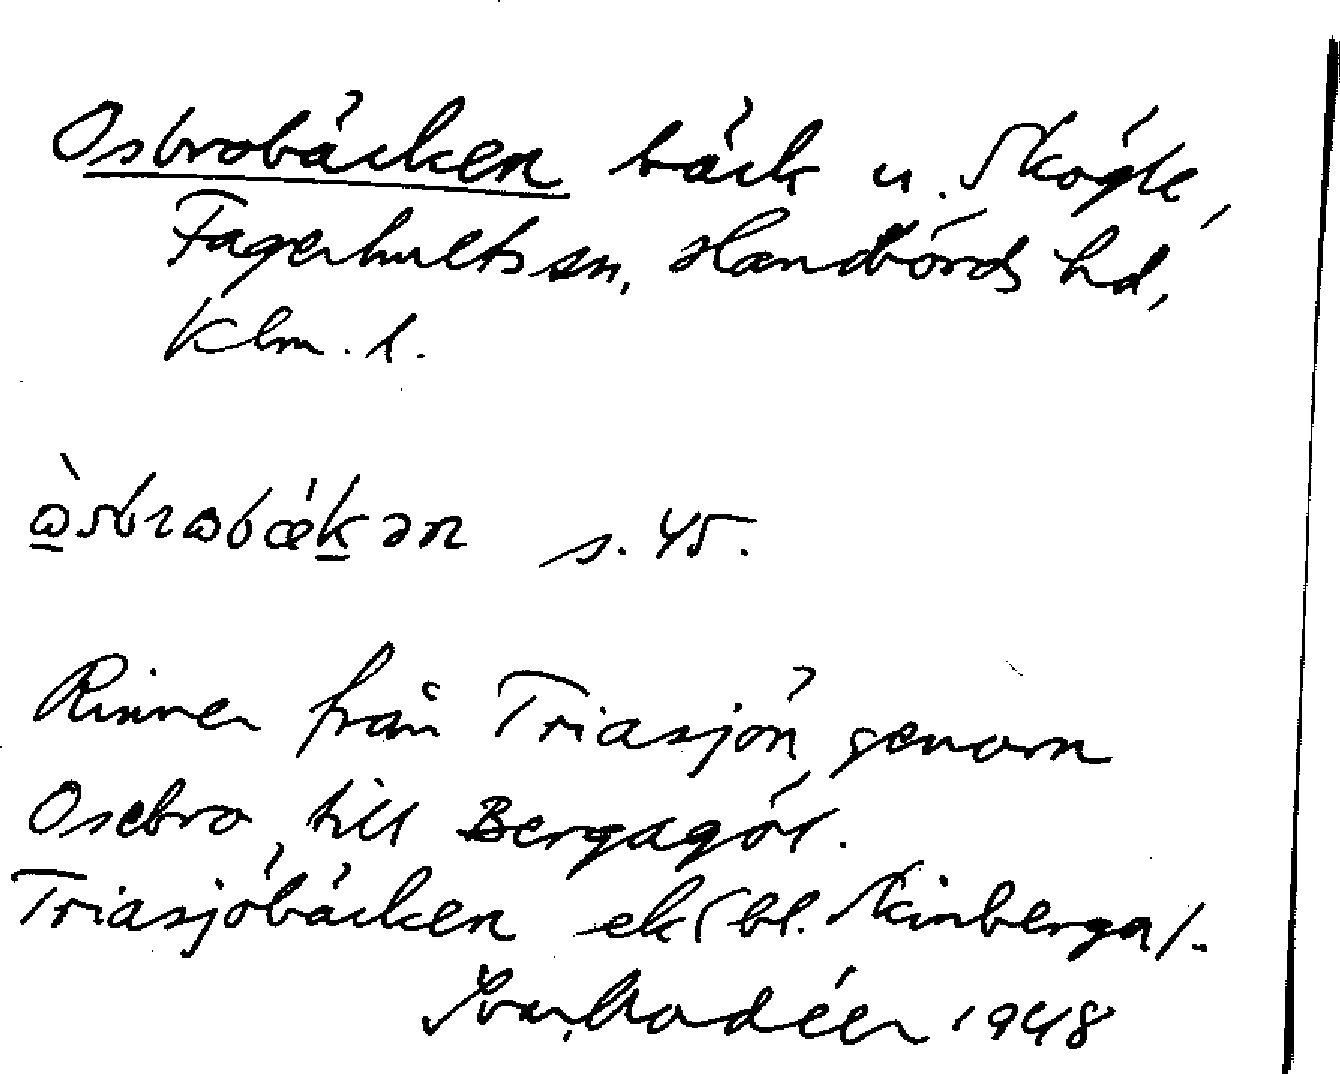 Osbrobäcken bäck u. Skögle,
Fagerhults sn, Handbörds hd,
Klm. l.
ὼsbrωbǽk̠ən s. 45.
Rinner från Triasjön, genom
Osebro, till Bergagöl.
Triasjöbäcken ek (bl. Skinberga).
Ivar Modéer 1948